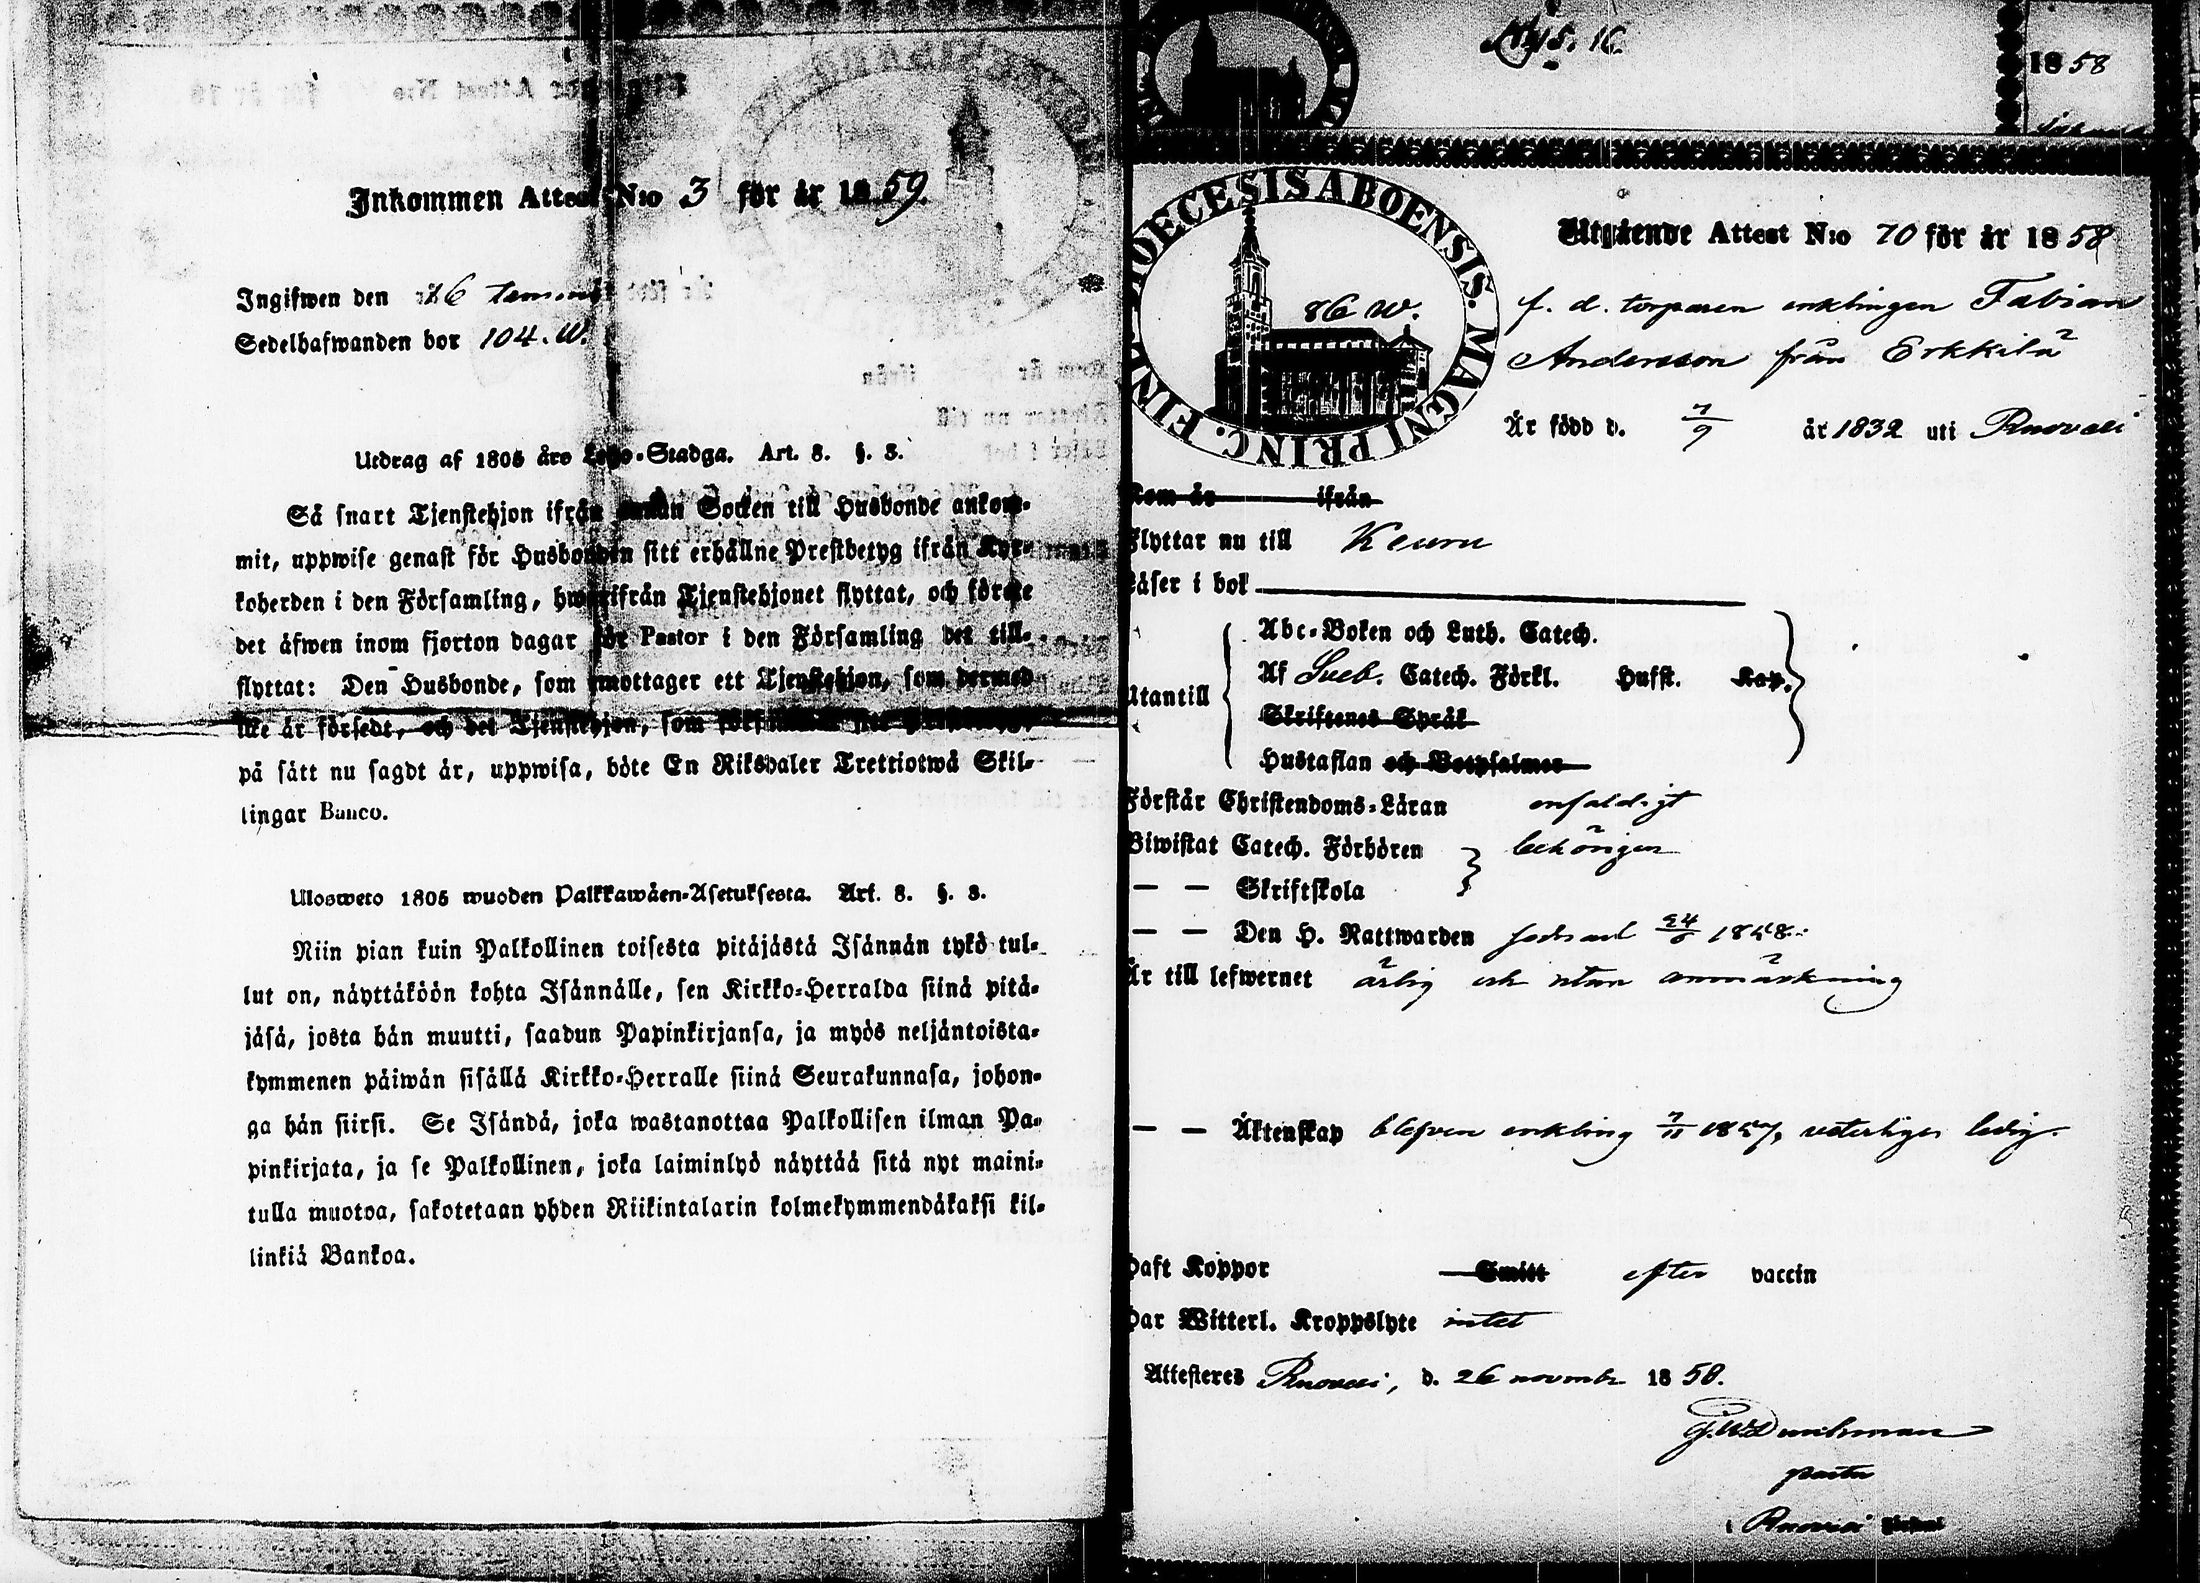 Inkommen Attest N:o 3 för år 1859.
Ingifwen den 26
Sedelhafwanden bor 104. W.
Utdrag af 1805 års Lego-Stadga. Art. 8. §. 3.
Så snart Tjenstehjon ifrån annan Socken till Husbonde ankom-
mit, uppwise genast för Husbonden sitt erhållne Prestbetyg ifrån Kyr-
koherden i den Församling, hwarifrån Tjenstehjonet flyttat, och förete
det äfwen inom fjorton dagar för Pastor i den Församling det till-
flyttat: Den Husbonde, som emottager ett Tjenstehjon, som dermed
icke är försedt, och det Tjenstehjon, som
på sätt nu sagdt är, uppwisa, böte En Riksdaler Trettiotwå Skil-
lingar Banco.
Ulosweto 1805 wuoden Palkkawäen-Asetuksesta. Art. 8. §. 3.
Niin pian kuin Palkollinen toisesta pitäjästä Isännän tykö tul-
lut on, näyttäköön kohta Isännälle, sen Kirkko-Herralda siinä pitä-
jäsä, josta hän muutti, saadun Papinkirjansa, ja myös neljäntoista-
kymmenen päiwän sisällä Kirkko-Herralle siinä Seurakunnasa, johon-
ga hän siirsi. Se Isändä, joka wastanottaa Palkollisen ilman Pa-
pinkirjata, ja se Palkollinen, joka laiminlyö näyttää sitä nyt maini-
tulla muotoa, sakotetaan yhden Riikintalarin kolmekymmendäkaksi kil-
linkiä Bankoa.
1858
DIOECESIS ABOENSIS. MAGNI PRINC. FINL.
86 W.
Utgående Attest N:o 70 för år 1858
f. d. torparen enklingen Fabian
Andersson från Erkkilä
År född d. 7/9 år 1832 uti Ruovesi
Kom år ifrån
Flyttar nu till Keuru
Läser i bok
Utantill
Abc-Boken och Luth. Catech.
Af Sveb. Catech. Förkl. Hufst. Kap.
Skriftenes Språk
Hustaflan och Botpsalmer
Förstår Christendoms-Läran enfaldigt
Biwistat Catech. Förhören behörigen
— — Skriftskola
— — Den H. Nattwarden 1858.
Är till lefwernet ärlig och utan anmärkning
— — Äktenskap blefven enkling 7/11 1857, veterligen ledig.
Haft Koppor Smitt efter vaccin
Har Witterl. Kroppslyte intet
Attesteres Ruovesi, d. 26 novemb. 1858.
pastor
i Ruovesi